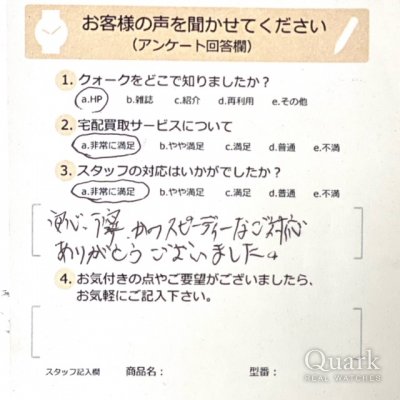 お客様の声を聞かせてください
（アンケート回答欄）
1. クォークをどこで知りましたか？
a.HP b.雑誌 c.紹介 d.再利用 e.その他
2. 宅配買取サービスについて
a.非常に満足 b.やや満足 c.満足 d.普通 e.不満
3. スタッフの対応はいかがでしたか？
a.非常に満足 b.やや満足 c.満足 d.普通 e.不満
丁寧かつスピーディーなご対応
ありがとうございました。
4. お気付きの点やご要望がございましたら、
お気軽にご記入下さい。
スタッフ記入欄 商品名： 型番：
Quark
REAL WATCHES